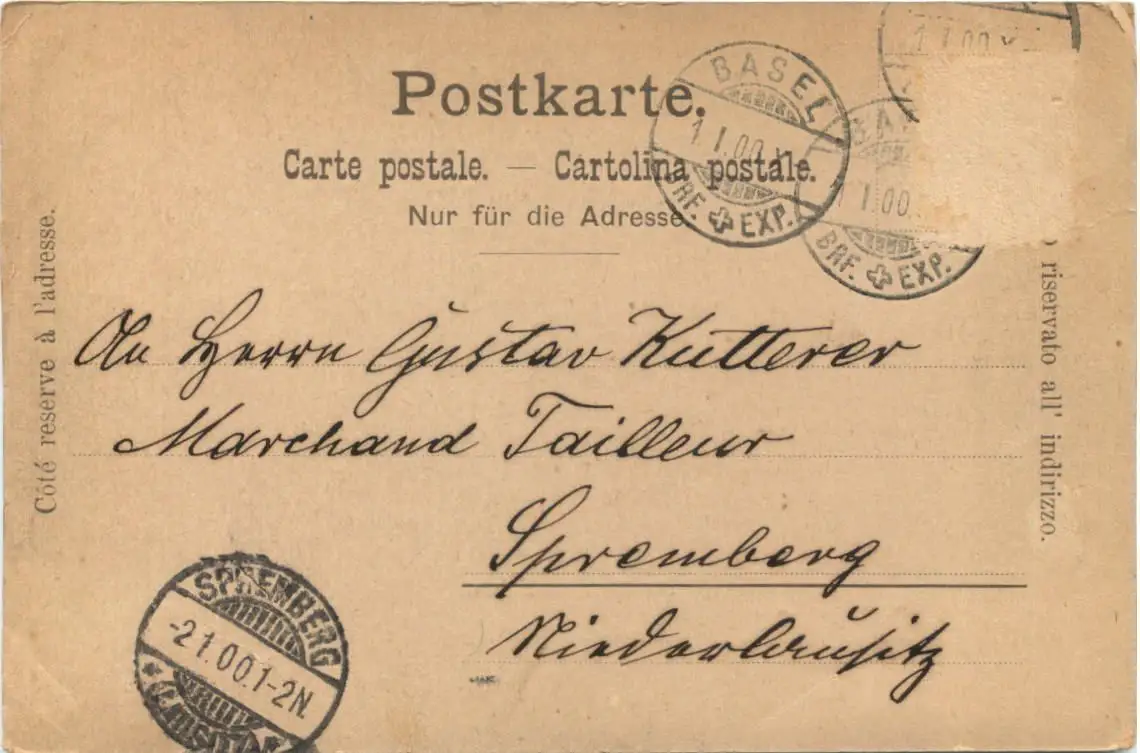 Postkarte.
Carte postale. — Cartolina postale.
Nur für die Adresse.
Côté reservé à l'adresse.
riservato all' indirizzo.
BASEL
1 I.00
BRF. EXP.
1 I.00
BRF. EXP.
1 I 00
An Herrn Gustav Kutterer
Marchand Tailleur
Spremberg
Niederlausitz
SPREMBERG
-2 1.00.1-2N.